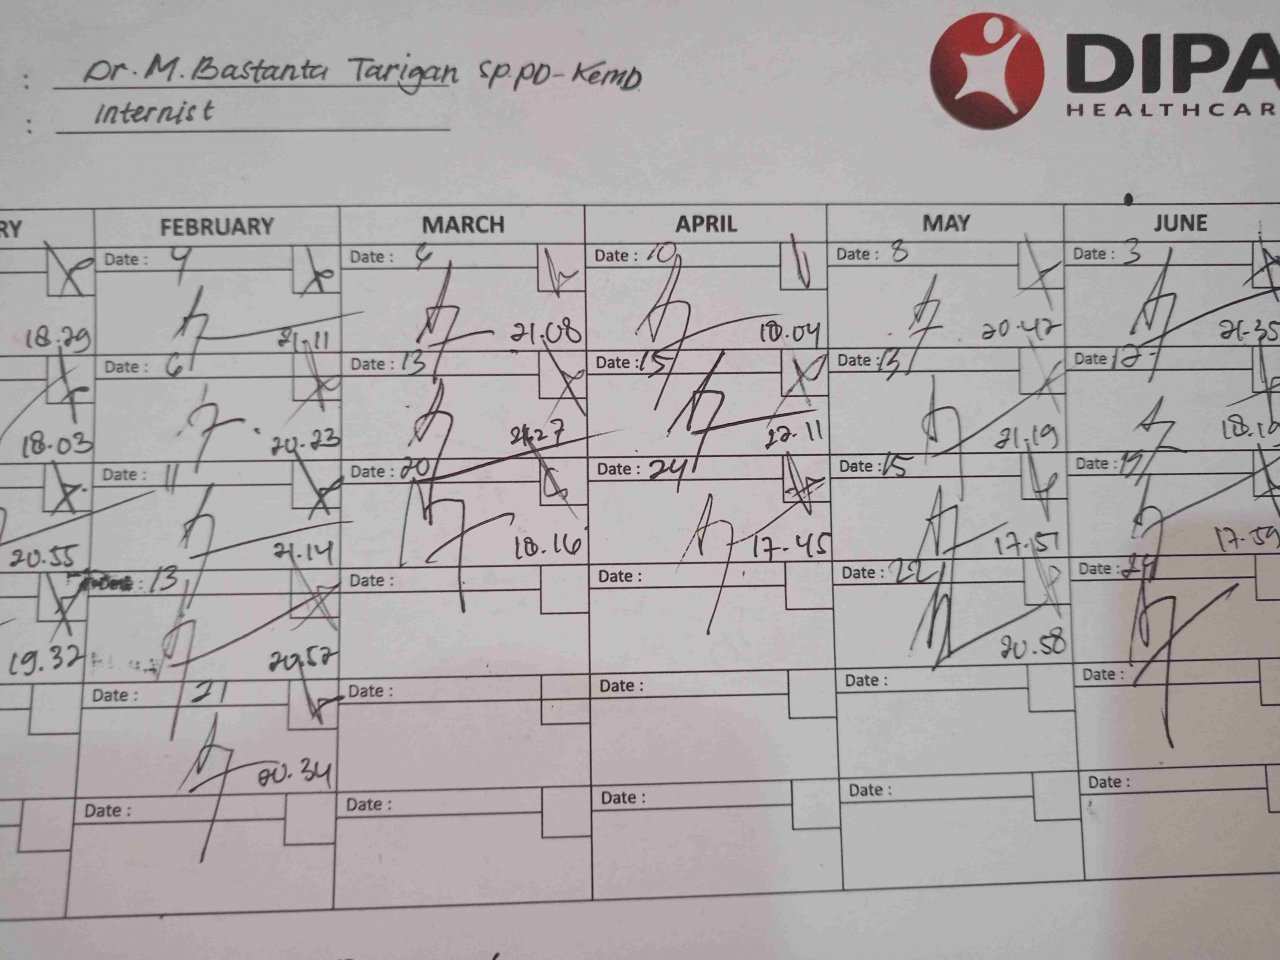 : Dr. M. Bastanta Tarigan Sp.PD-KEMD
: Internist
DIPA
HEALTHCAR
RY FEBRUARY MARCH APRIL MAY JUNE
Date : 4 Date : 6 Date : 10 Date : 8 Date : 3
18.29 21.11 21.08 18.04 20.42 21.35
Date : 6 Date : 13 Date : 15 Date : 13 Date : 12
18.03 20.23 21.27 22.11 21.19 18.19
Date : 11 Date : 20 Date : 24 Date : 15 Date :
20.55 21.14 18.16 17.45 17.51 17.59
: 13 Date : Date : Date : 22 Date : 24
19.32 20.52 20.58
Date : 21 Date : Date : Date : Date :
20.34
Date : Date : Date : Date : Date :